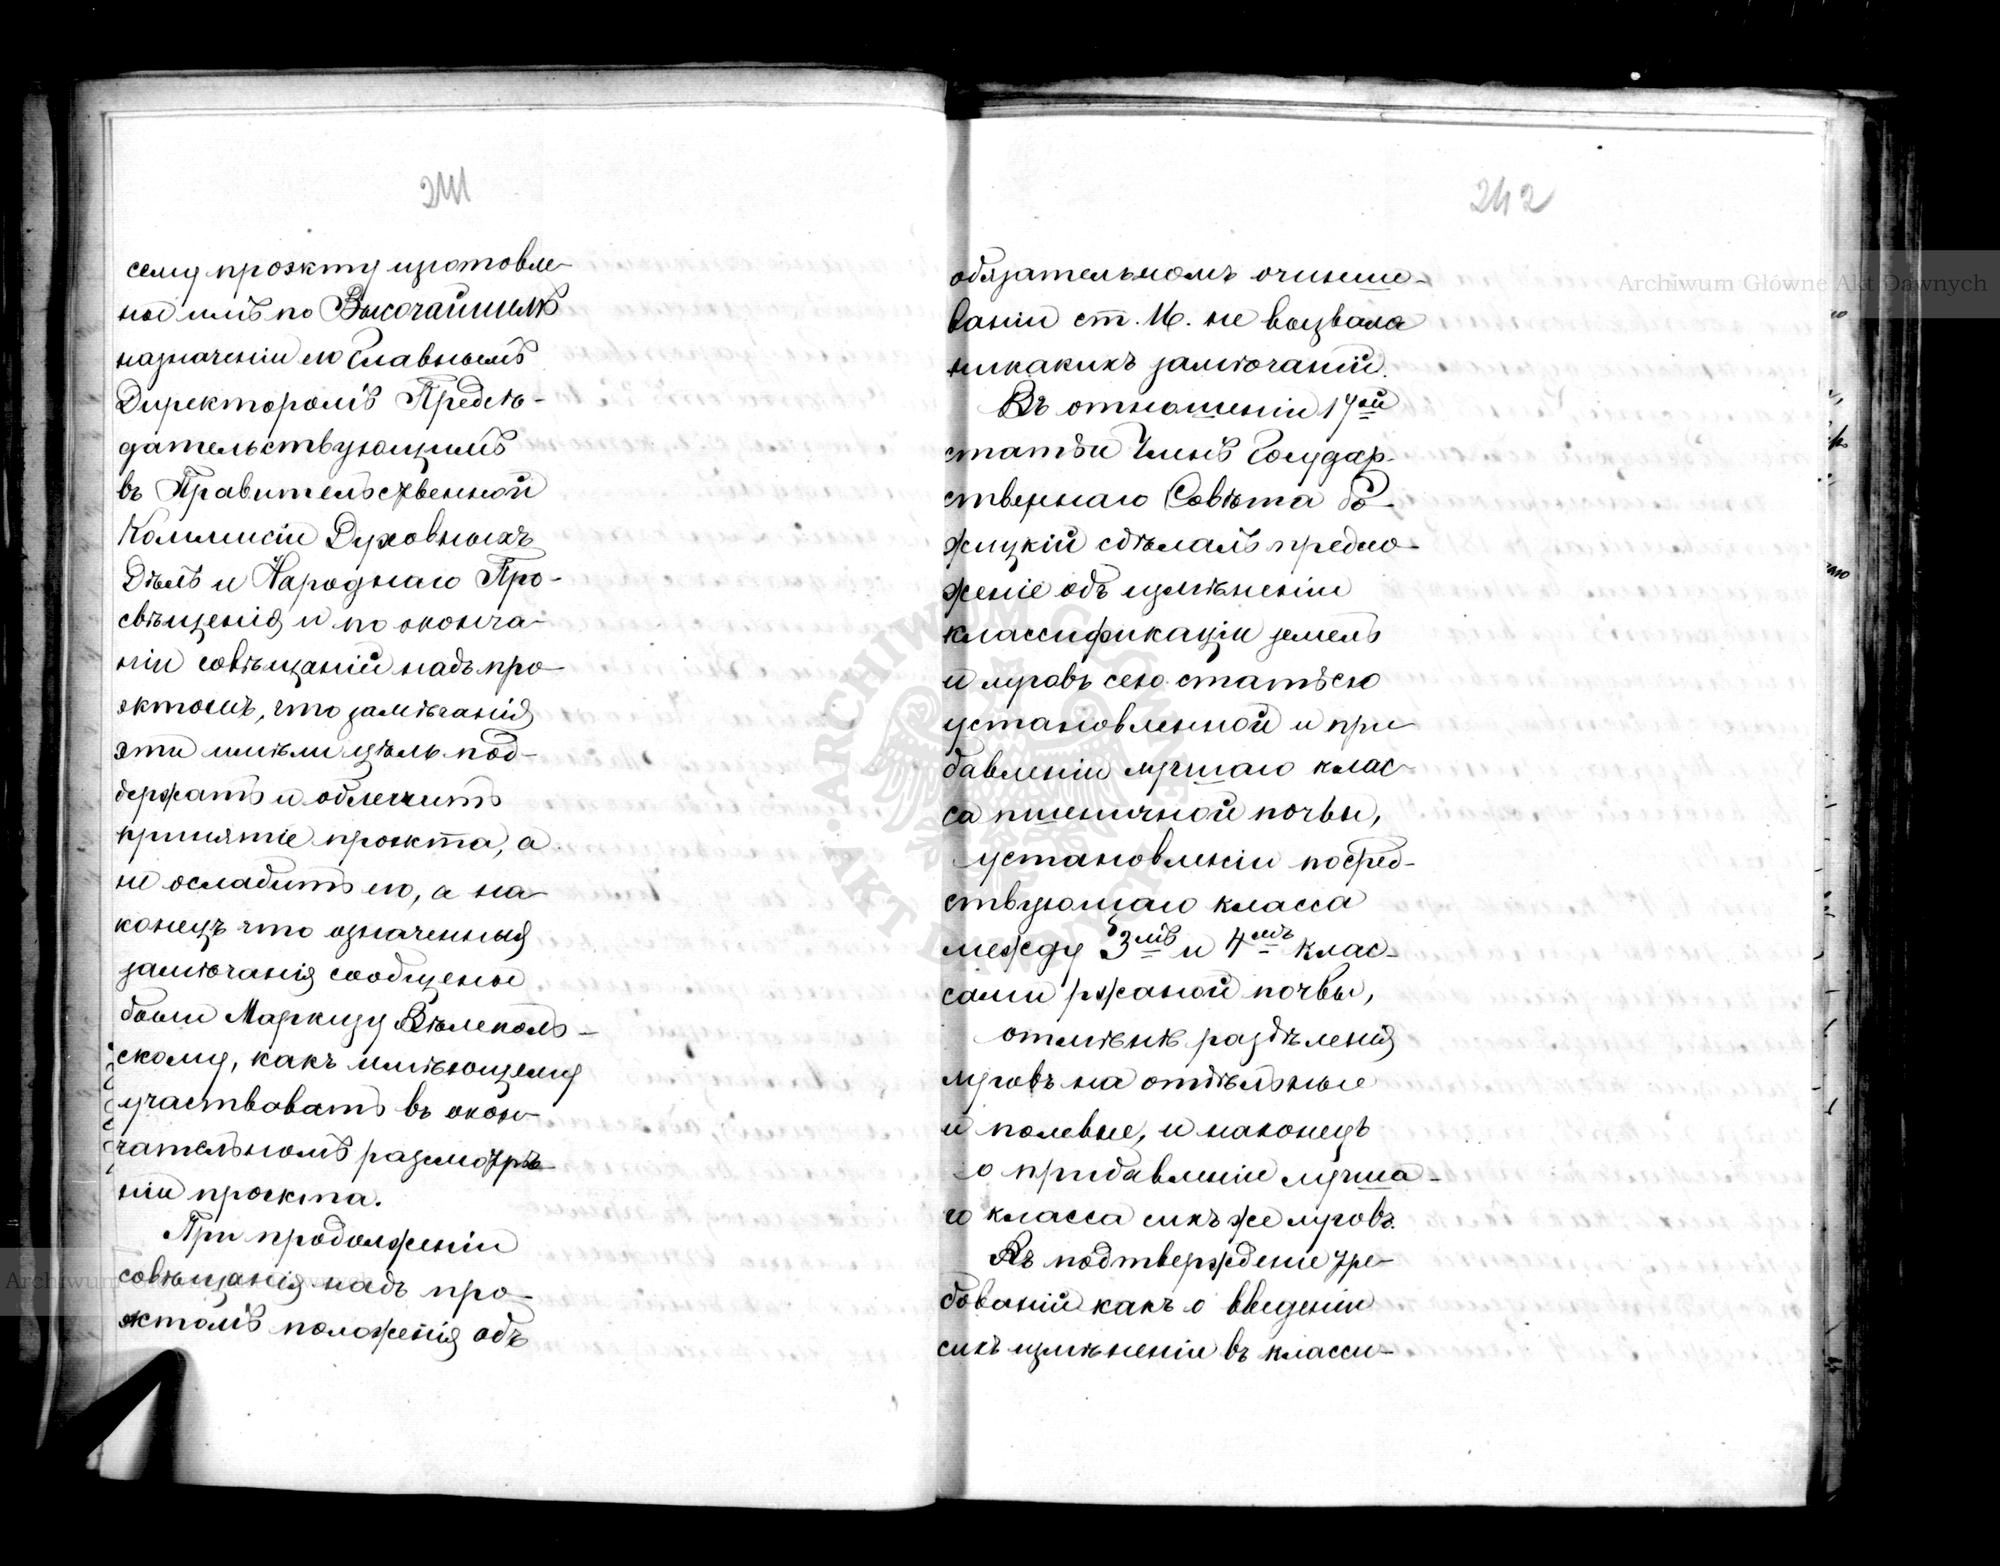 241
сему проэкту изготовле-
ны имъ по Высочайшемъ
назначеніи его Главнымъ
Директоромъ Предсѣ-
дательствующимъ
въ Правительственной
Коммисіи Духовныхъ
Дѣлъ и Народнаго Про-
свѣщенія и по оконча-
ніи совѣщаній надъ про-
эктомъ, что замѣчанія
эти имѣли цѣль под-
держать и облегчить
принятіе проэкта, а
не ослабить его, а на-
конецъ что означенныя
замѣчанія сообщены
были Маркизу Вѣлеполь-
скому, какъ имѣющему
участвовать въ окон-
чательномъ разсмотрѣ-
ніи проэкта.
При продолженіи
совѣщанія надъ про-
эктомъ положенія объ
242
обязательномъ очинше-
ваніи ст. 16. не вызвала
никакихъ замѣчаній.
Въ отношеніи 17ой
статьи Членъ Государ-
ственнаго Совѣта
сдѣлалъ предло-
женіе объ измѣненіи
классификаціи земель
и луговъ сею статьею
установленной и при
бавленіи лучшаго клас-
са пшеничной почвы,
установленіи посред-
ствующаго класса
между 3мъ и 4мъ клас-
сами ржаной почвы,
отмѣнѣ раздѣленія
луговъ на отдѣльные
и полевые, и наконецъ
о прибавленіи лучша-
го класса сихъ же луговъ.
Въ подтвержденіе тре-
бованій какъ о введеніи
сихъ измѣненіе въ класси-
Archiwum Główne Akt Dawnych